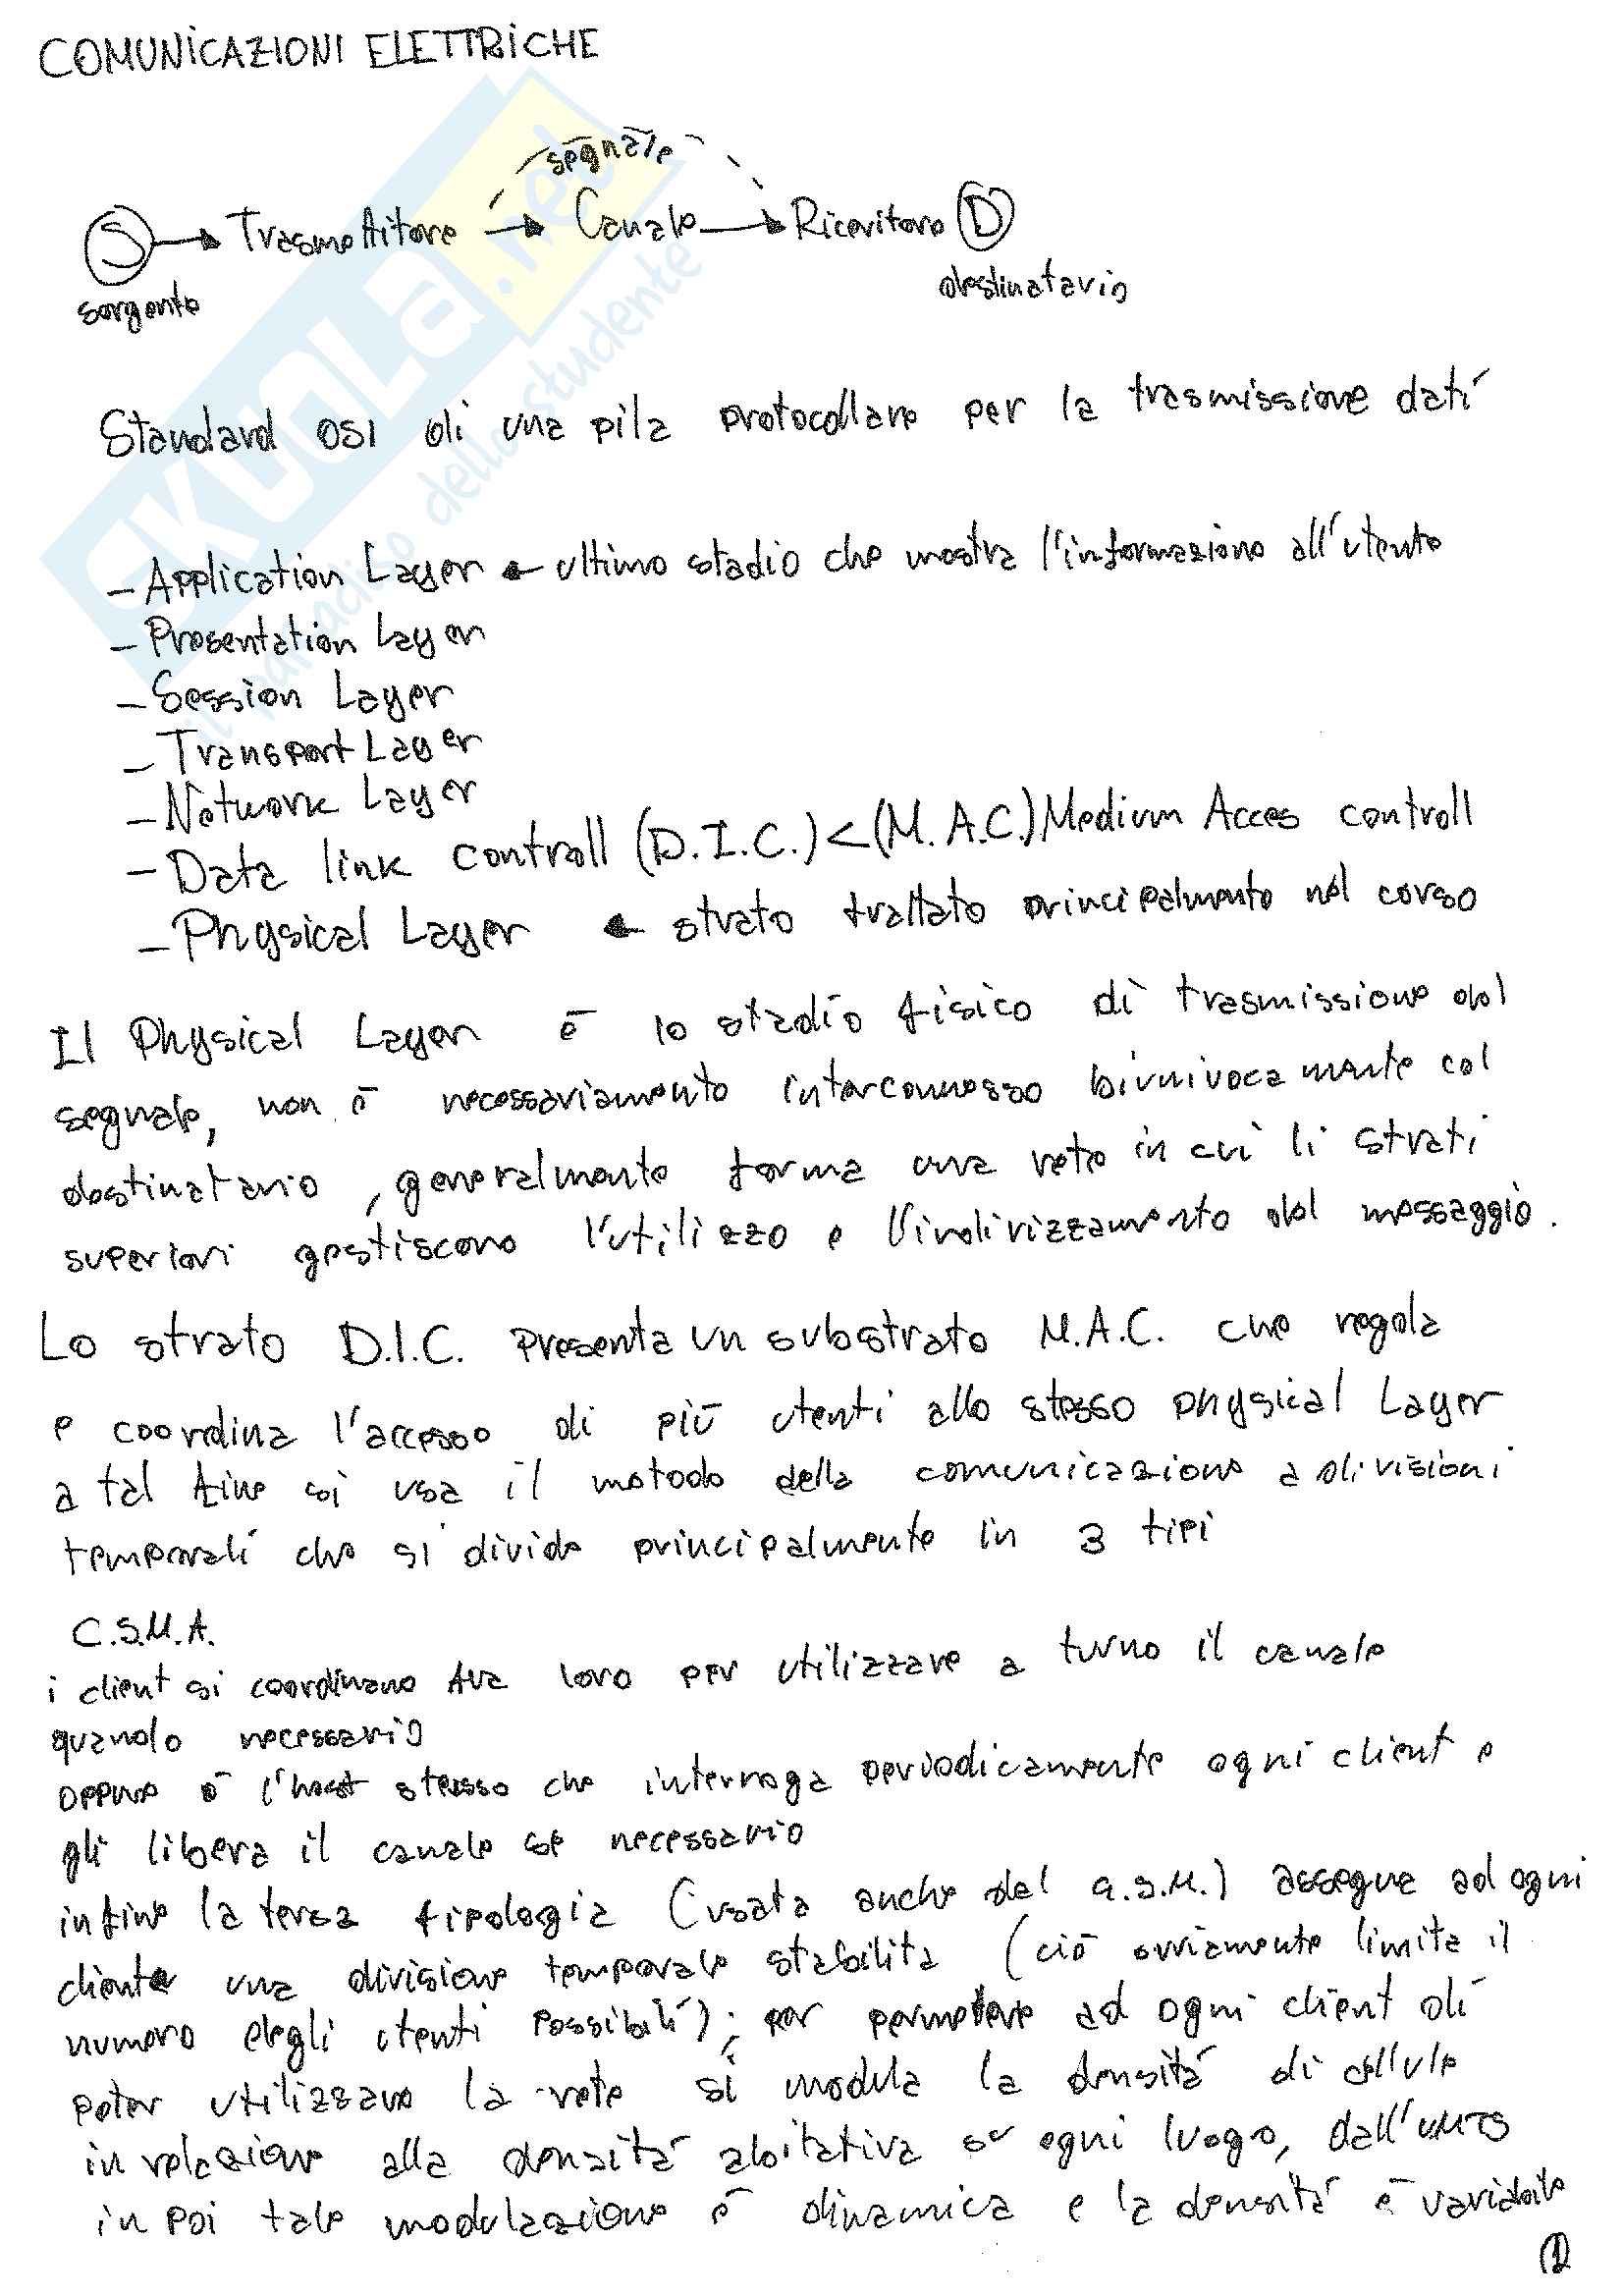 COMUNICAZIONI ELETTRICHE
segnale
S → Trasmettitore → Canale → Ricevitore D
sorgente
destinatario
Standard OSI di una pila protocollare per la trasmissione dati
- Application Layer ← ultimo stadio che mostra l'informazione all'utente
- Presentation Layer
- Session Layer
- Transport Layer
- Network Layer
- Data link controll (D.I.C.) < (M.A.C.) Medium Acces controll
- Physical Layer ← strato trattato principalmente nel corso
Il Physical Layer è lo stadio fisico di trasmissione del
segnale, non è necessariamente interconnesso bivnivocamente col
destinatario, generalmente forma una rete in cui li strati
superiori gestiscono l'utilizzo e l'indirizzamento del messaggio.
Lo strato D.I.C. presenta un substrato M.A.C. che regola
e coordina l'accesso di più utenti allo stesso physical Layer
a tal fine si usa il metodo della comunicazione a divisioni
temporali che si divide principalmente in 3 tipi
C.S.M.A.
i client si coordinano tra loro per utilizzare a turno il canale
quando necessario
oppure è l'host stesso che interroga periodicamente ogni client e
gli libera il canale se necessario
infine la terza tipologia (usata anche dal G.S.M.) assegna ad ogni
cliente una divisione temporale stabilita (ciò ovviamente limita il
numero degli utenti possibili); per permettere ad ogni client di
poter utilizzare la rete si modula la densità di cellule
in relazione alla densità abitativa di ogni luogo, dall'UMTS
in poi tale modulazione è dinamica e la densità è variabile
1
SKUOLA.net
il paradiso dello studente